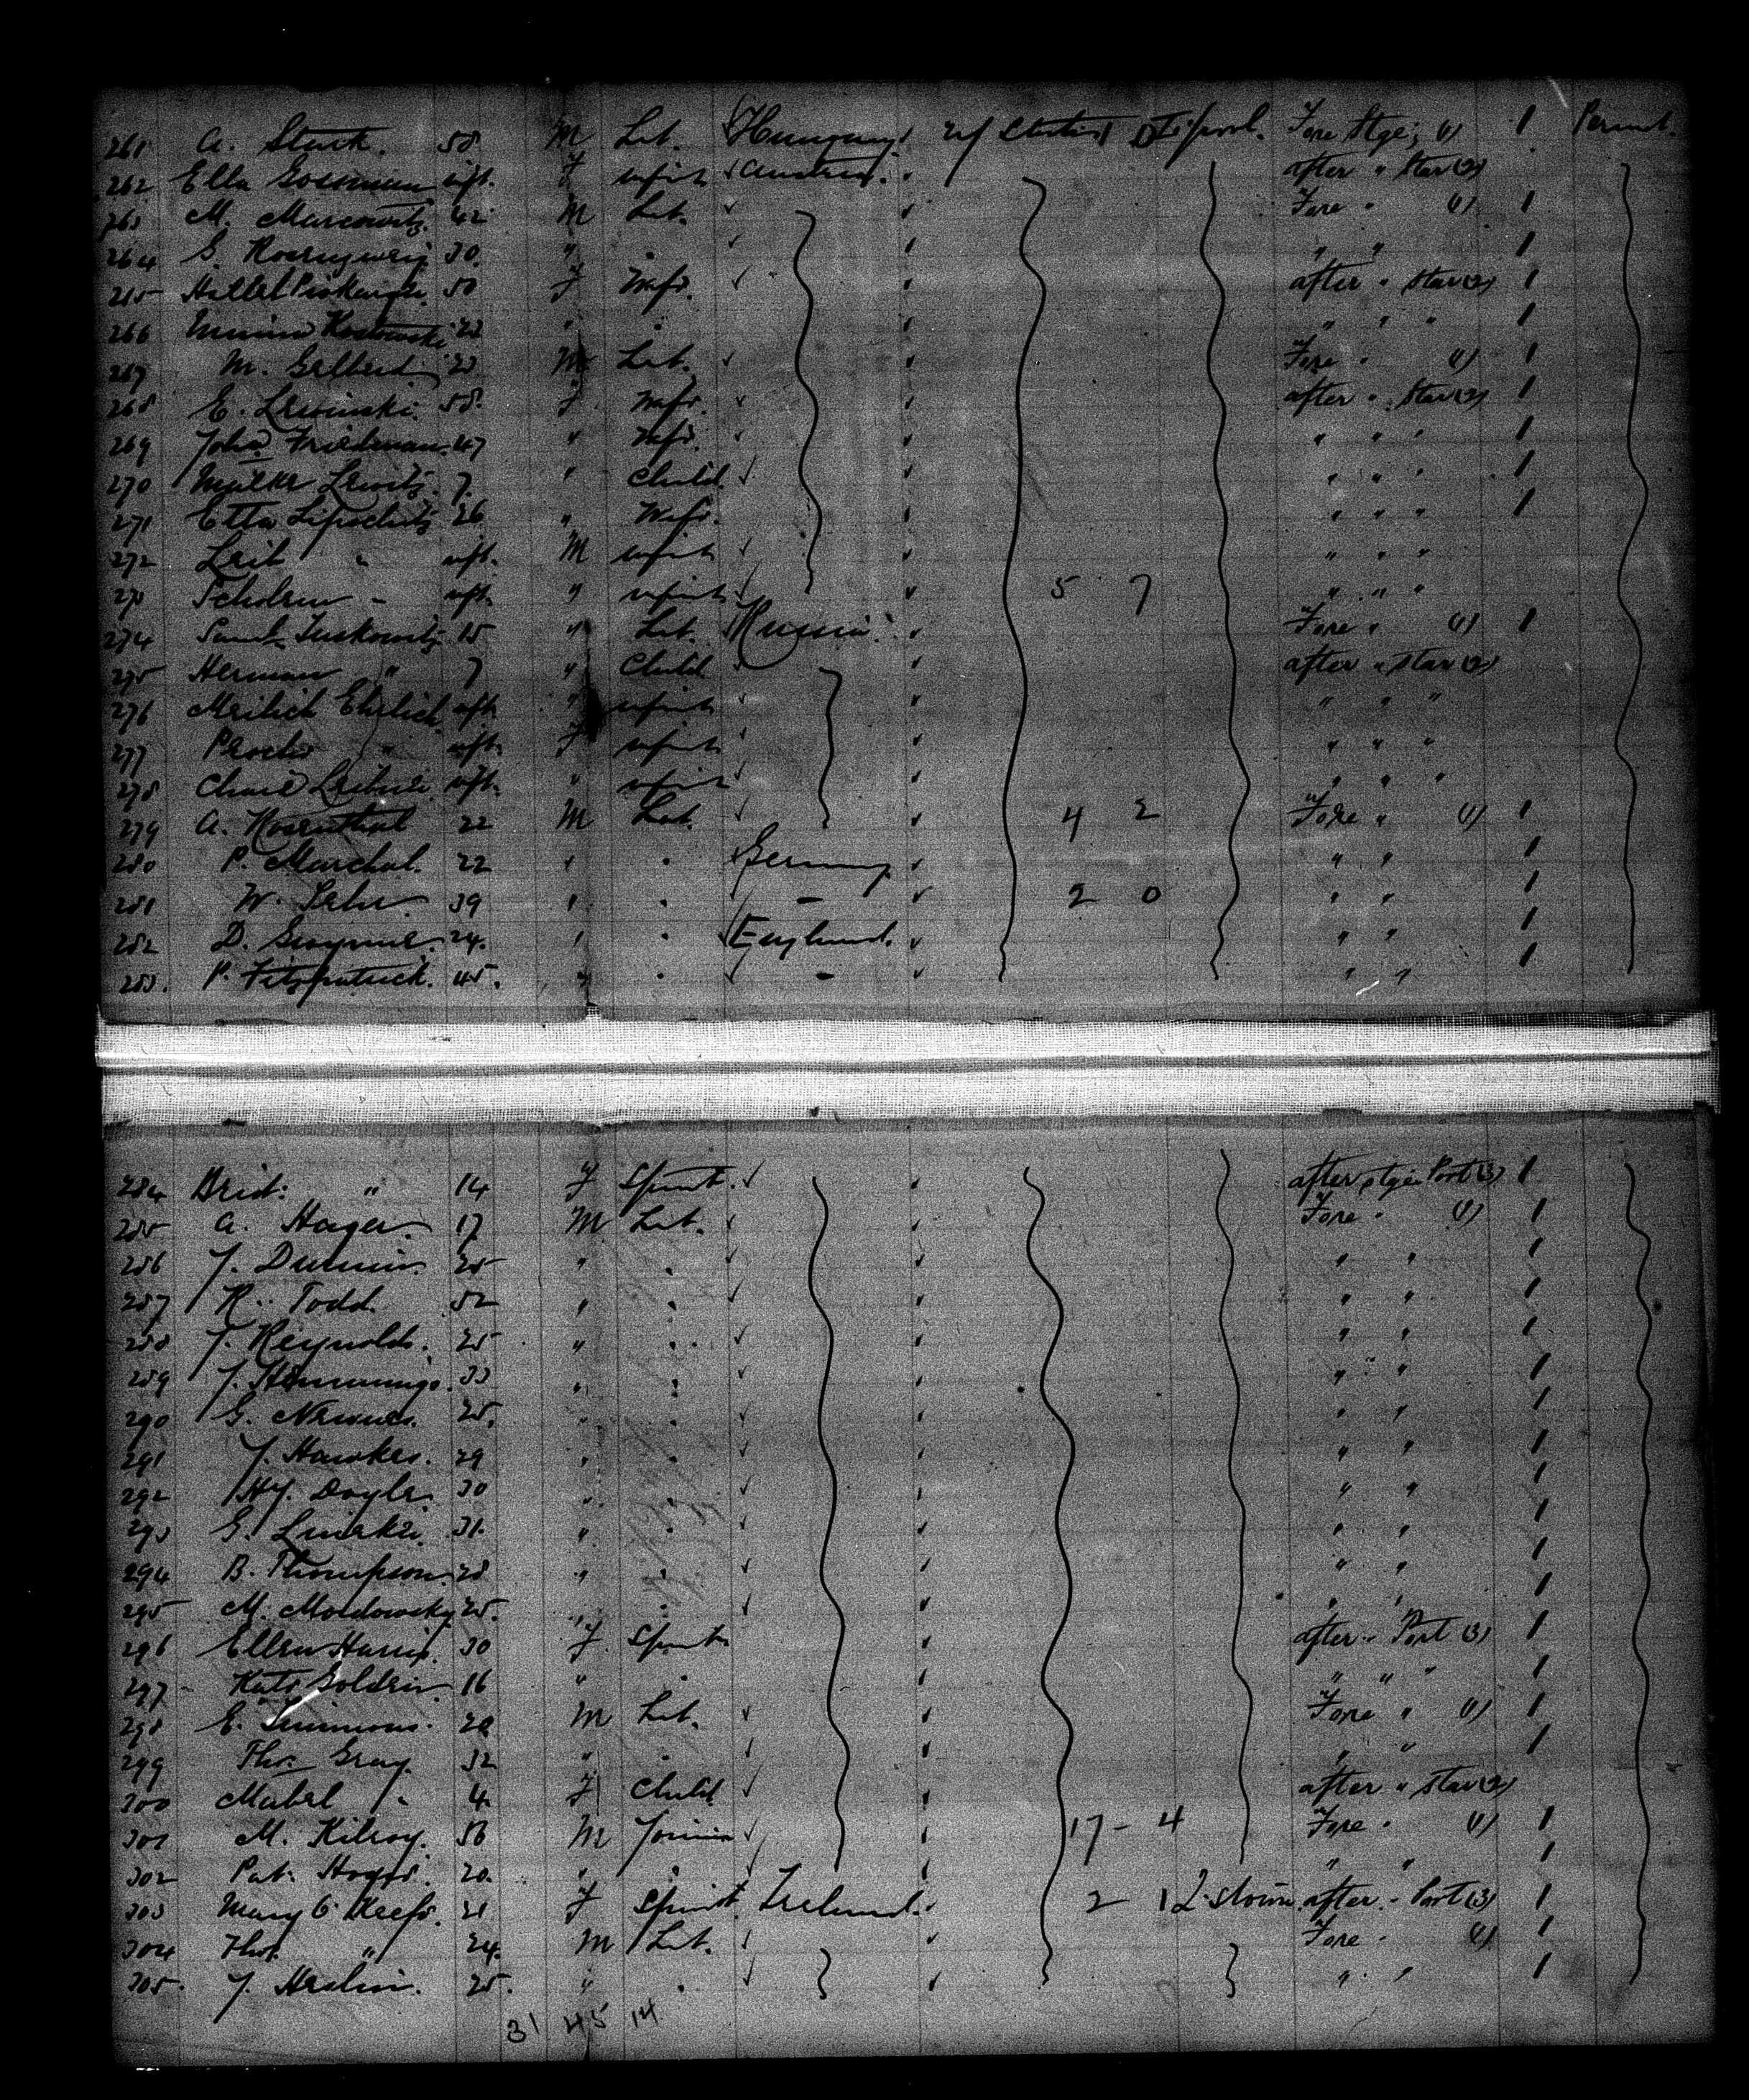 261 A. Stark. 58 M Lab. Hungary U States L'pool. Fore Stge; (1) 1 Permt.
262 Ella Gossman inft. F infant Austria. after " Star (2)
263 M. Marcowitz 42 M Lab. Fore " (1) 1
264 S. 30 " " " " 1
265 Hillel 50 F Wife. after " Star (2) 1
266 Kosbowski 22 " " " " " 1
267 M. Gelbard 23 M Lab. Fore " (1) 1
268 E. Lewinski. 58. F Wife. after " Star (2) 1
269 Friedman 47 " Wife. " " " 1
270 Lewitz 7 " Child " " " 1
271 Etta Lipschitz 26 " Wife. " " " 1
272 Leib " inft. M infant " " "
273 " inft. " infant 5 7 " " "
274 Saml. 15 " Lab. Russia. Fore " (1) 1
275 Herman " 7 " Child after " Star (2)
276 Ehrlich inft " infant " " "
277 " inft. F infant " " "
278 inft. " infant " " "
279 A. Rosenthal 22 M Lab. 4 2 Fore " (1) 1
280 P. Marchal. 22 " " Germany " " 1
281 W. 39 " " - 2 0 " " 1
282 D. Gwynne. 24. " " England. " " 1
283. P. Fitzpatrick. 45. " " - " " 1
284 Brid: " 14 F Spinst. after stge Port (3) 1
285 A. Hager 17 M Lab. Fore " (1) 1
286 J. 25 " " " " 1
287 R. Todd. 52 " " " " 1
288 T. Reynolds. 25 " " " " 1
289 J. Hemmings. 33 " " " " 1
290 G. Newnes. 25. " " " " 1
291 J. Hawkes. 29 " " " " 1
292 Hy. Doyle. 30 " " " " 1
293 31. " " " " 1
294 B. Thompson 28 " " " " 1
295 M. Moldowsky 25. " " " " 1
296 Ellen Harris. 30 F Spinst after " Port (3) 1
297 Kate 16 " " " " " 1
298 E. Simmons. 20 M Lab. Fore " (1) 1
299 Thos. Gray. 32 " " " " 1
300 Mabel " 4 F Child after " Star (2)
301 M. Kilroy. 56 M 17 - 4 Fore " (1) 1
302 Pat. 20. " " " " 1
303 Mary O'Keefe. 21 F Spinst. Ireland. 2 1 after " Port (3) 1
304 Thos. " 24. M Lab. Fore " (1) 1
305. J. Heslin. 25. " " " " 1
31 45 14